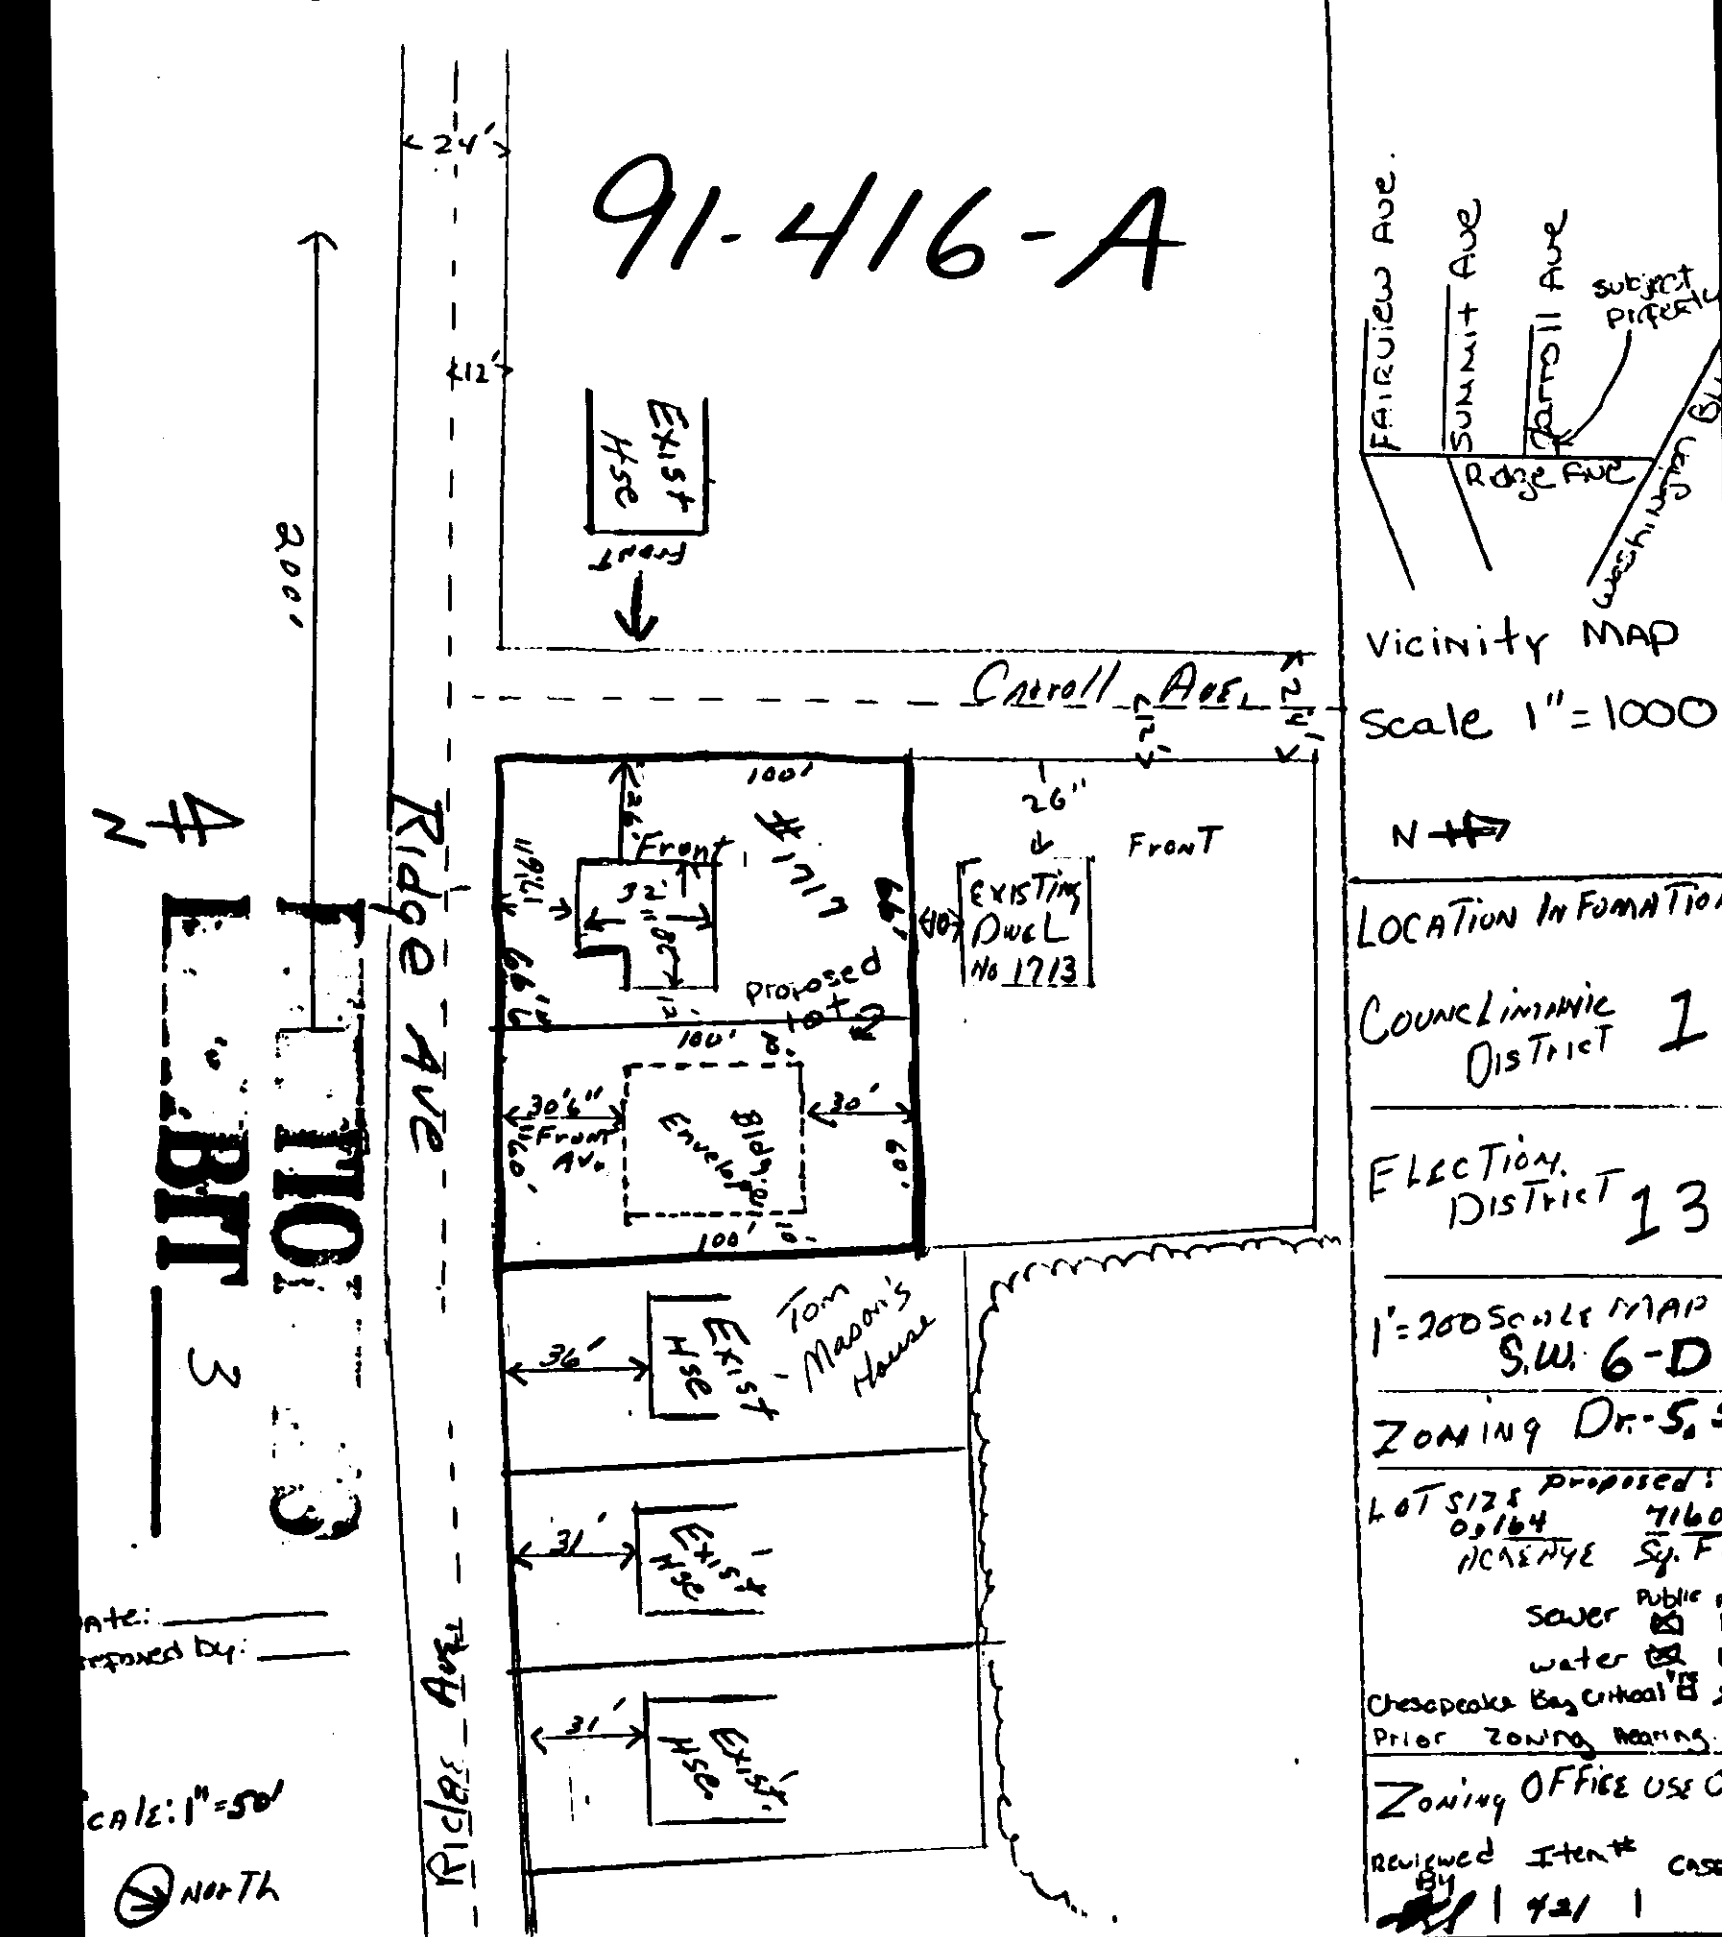 91-416-A
24'
12'
200'
Exist
Hse
Front
Carroll Ave.
24'
12'
100'
26'
Front
#1717
11'9½"
32'
66'
66'6"
12'
Proposed
Lot
Ridge Ave
100'
10'
30'6"
From
Av.
Bldg.
Envelope
30'
60'
60'
100'
10'
26"
Front
Existing
Dwel
No 1713
10'
Tom
Mason's
House
36'
Exist
Hse
31'
Exist.
Hse
31'
Exist.
Hse
Ridge Ave.
N
3
ate:
by:
cale: 1"=50'
North
Fairview Ave.
Summit Ave
Carroll Ave
subject
property
Ridge Ave
Washington
Vicinity Map
Scale 1"=1000
N
Location Infomation
Counclimanic
District 1
Election.
District 13
1'=200 Scale Map
S.W. 6-D
Zoning Dr.-5.5
Lot Size Proposed:
0.164 7160
Acreage Sq. F
Public
sewer
water
Chesapeake Bay Critical
Prior Zoning Hearing.
Zoning Office Use O
Reviewed Item# Case
By
421